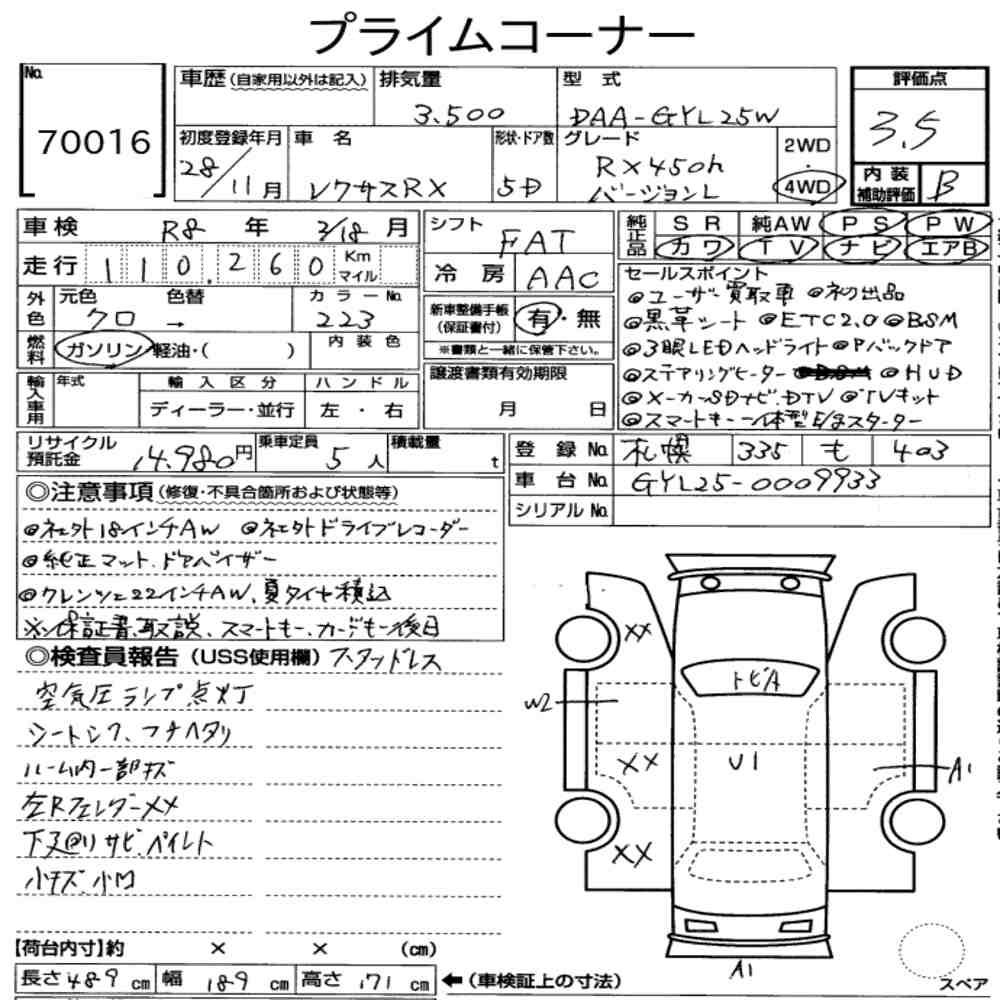 プライムコーナー
No. 70016
車歴(自家用以外は記入) 排気量 3.500 型式 DAA-GYL25W
評価点 3.5
初度登録年月 28/11月 車名 レクサスRX 形状・ドア数 5D グレード RX450h バージョンL 2WD・4WD
内装補助評価 B
車検 R8年 3/18月
走行 110,260 Km マイル
外色 元色 クロ → 色替 カラーNo. 223
燃料 ガソリン・軽油・( ) 内装色
輸入車用 年式 輸入区分 ディーラー・並行 ハンドル 左・右
リサイクル預託金 14.980円 乗車定員 5人 積載量 t
シフト FAT
冷房 AAC
新車整備手帳(保証書付) 有・無
※書類と一緒に保管下さい。
譲渡書類有効期限
月 日
純正品 SR 純AW PS PW
カワ TV ナビ エアB
セールスポイント
◎ユーザー買取車 ◎初出品
◎黒革シート ◎ETC2.0 ◎BSM
◎3眼LEDヘッドライト ◎Pバックドア
◎ステアリングヒーター ◎HUD
◎メーカーSDナビ.DTV ◎TVキット
◎スマートキー一体型E/gスターター
登録No. 札幌 335 も 403
車台No. GYL25-0009933
シリアルNo.
◎注意事項(修復・不具合箇所および状態等)
◎社外18インチAW ◎社外ドライブレコーダー
◎純正マット.ドアバイザー
◎クレンツェ22インチAW.夏タイヤ積込
※保証書.取説、スマートキー、カードキー後日
◎検査員報告(USS使用欄) スタッドレス
空気圧ランプ点灯
シートシワ、フチヘタリ
ルーム内一部キズ
左Rフェンダーメメ
下廻りサビ.ペイント
小キズ.小凹
XX
トビA
W2
XX
U1
A1
XX
A1
【荷台内寸】約 × × (cm)
長さ489cm 幅189cm 高さ171cm ←(車検証上の寸法)
スペア